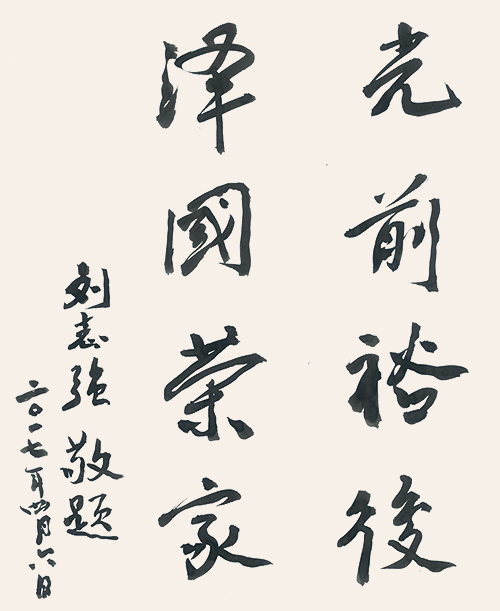 光前裕後
泽國荣家
刘志强 敬题
二〇一七年四月六日